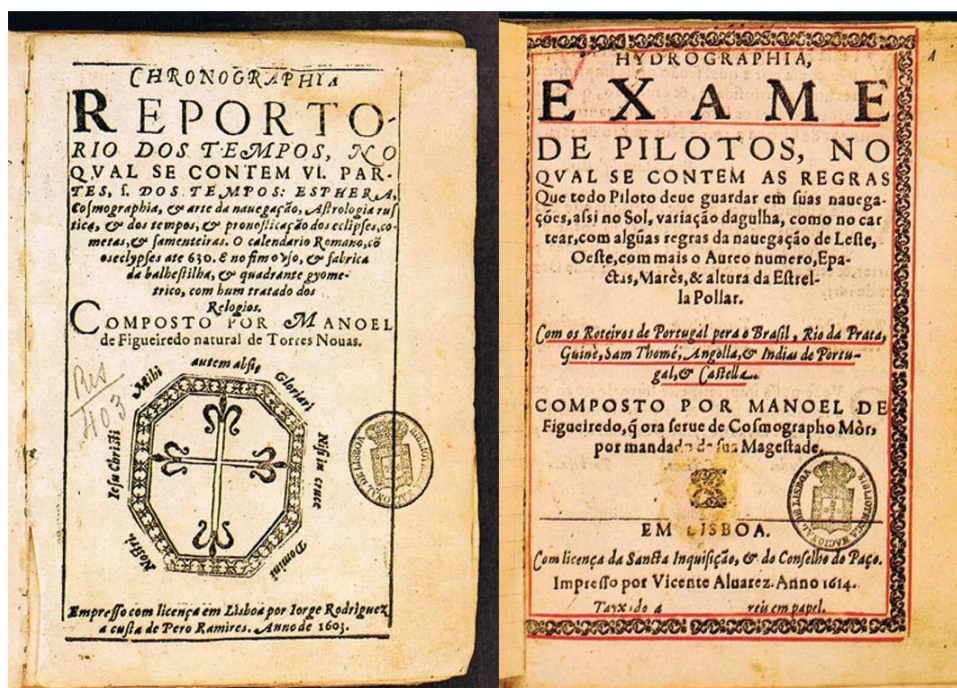 CHRONOGRAPHIA
REPORTO-
RIO DOS TEMPOS, NO
QVAL SE CONTEM VI. PAR-
TES, ſ. DOS TEMPOS: ESPHERA,
Coſmographia, & arte da nauegação, Aſtrologia ruſ
tica, & dos tempos, & pronoſticação dos eclipſes, co-
metas, & ſamenteiras. O calendario Romano, cõ
os eclypſes ate 630. E no fim o vſo, & fabrica
da balheſtilha, & quadrante gyome-
trico, com hum tratado dos
Relogios.
COMPOSTO POR MANOEL
de Figueiredo natural de Torres Nouas.
Res
403
Mihi autem abſit Gloriari Niſi in cruce Domini Noſtri Ieſu Chriſti
BIBLIOTHECA NACIONAL DE LISBOA
Empreſſo com licença em Lisboa por Iorge Rodriguez
a cuſta de Pero Ramires. Anno de 1603.
HYDROGRAPHIA,
EXAME
DE PILOTOS, NO
QVAL SE CONTEM AS REGRAS
Que todo Piloto deue guardar em ſuas nauega-
ções, aſsi no Sol, variação dagulha, como no car
tear, com algũas regras da nauegação de Leſte,
Oeſte, com mais o Aureo numero, Epa-
ctas, Marès, & altura da Eſtrel-
la Pollar.
Com os Roteiros de Portugal pera o Braſil, Rio da Prata,
Guinè, Sam Thomé, Angolla, & Indias de Portu-
gal, & Caſtella.
COMPOSTO POR MANOEL DE
Figueiredo, q̃ ora ſerue de Coſmographo Mòr,
por mandado de ſua Mageſtade.
BIBLIOTHECA NACIONAL DE LISBOA
EM LISBOA.
Com licença da Sancta Inquiſição, & do Conſelho do Paço.
Impreſſo por Vicente Aluarez. Anno 1614.
Taxado a reis em papel.